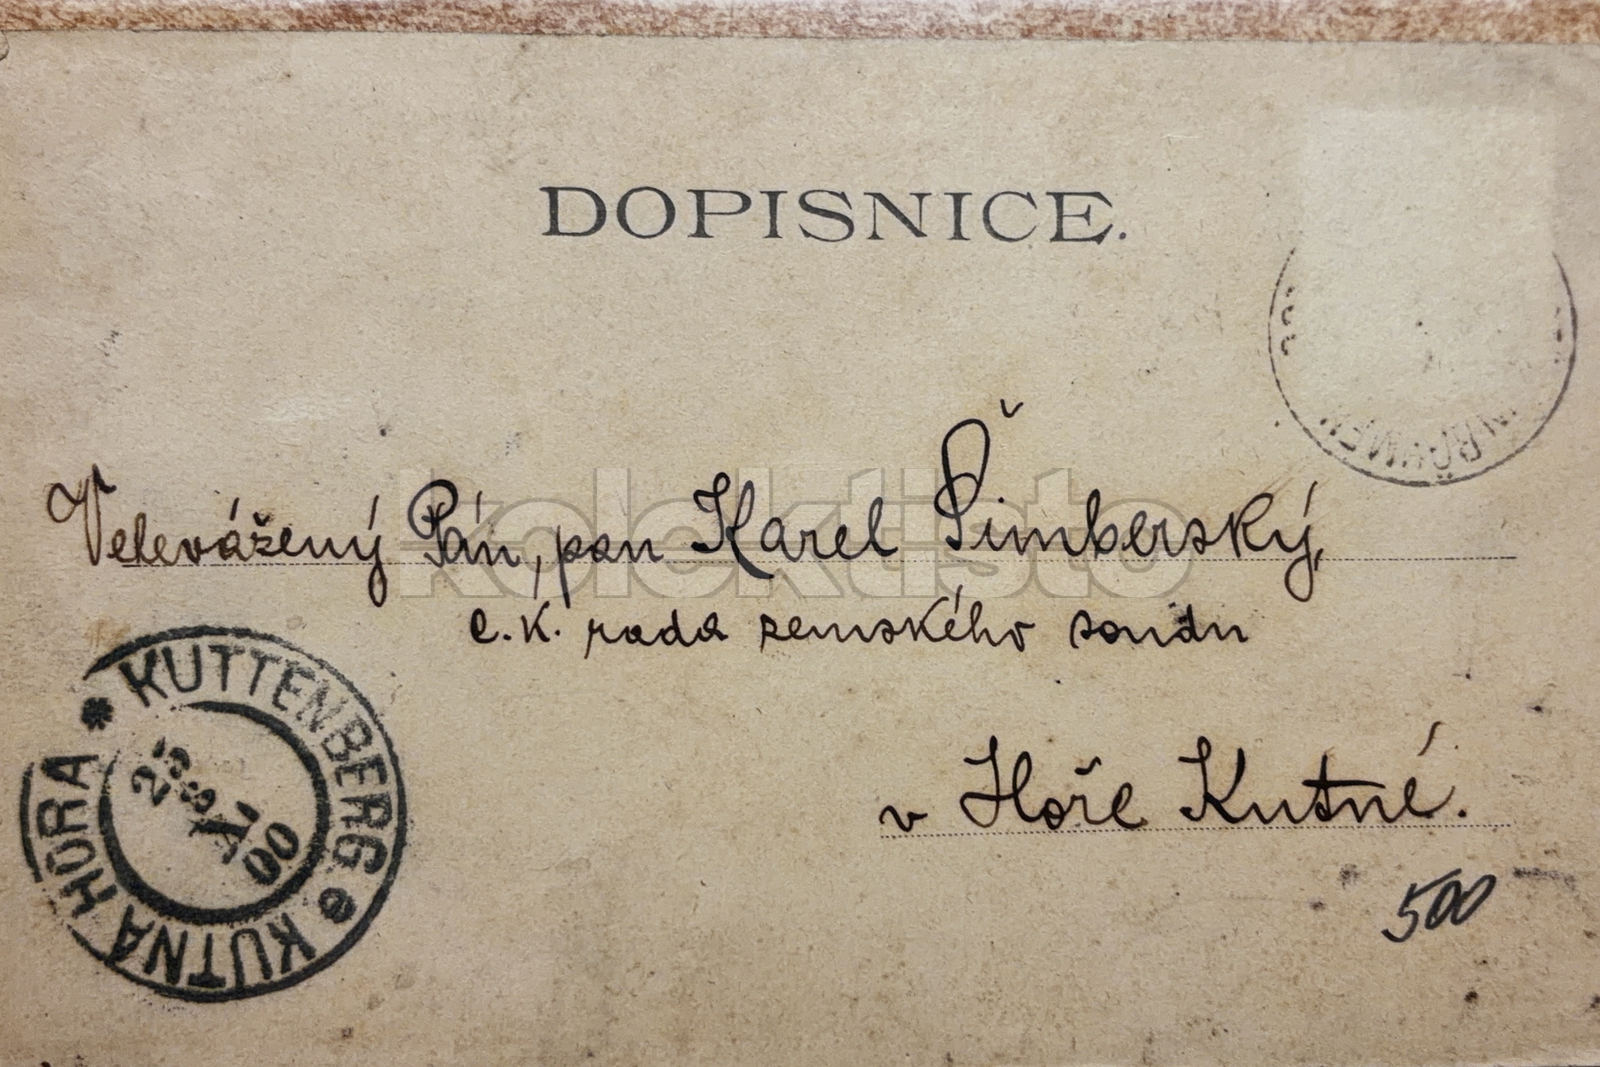 DOPISNICE.
Velevážený Pán, pan Karel Šimberský,
c. k. rada zemského soudu
v Hoře Kutné.
500
KUTTENBERG
KUTNÁ HORA
25
8
X
00
kolektisto